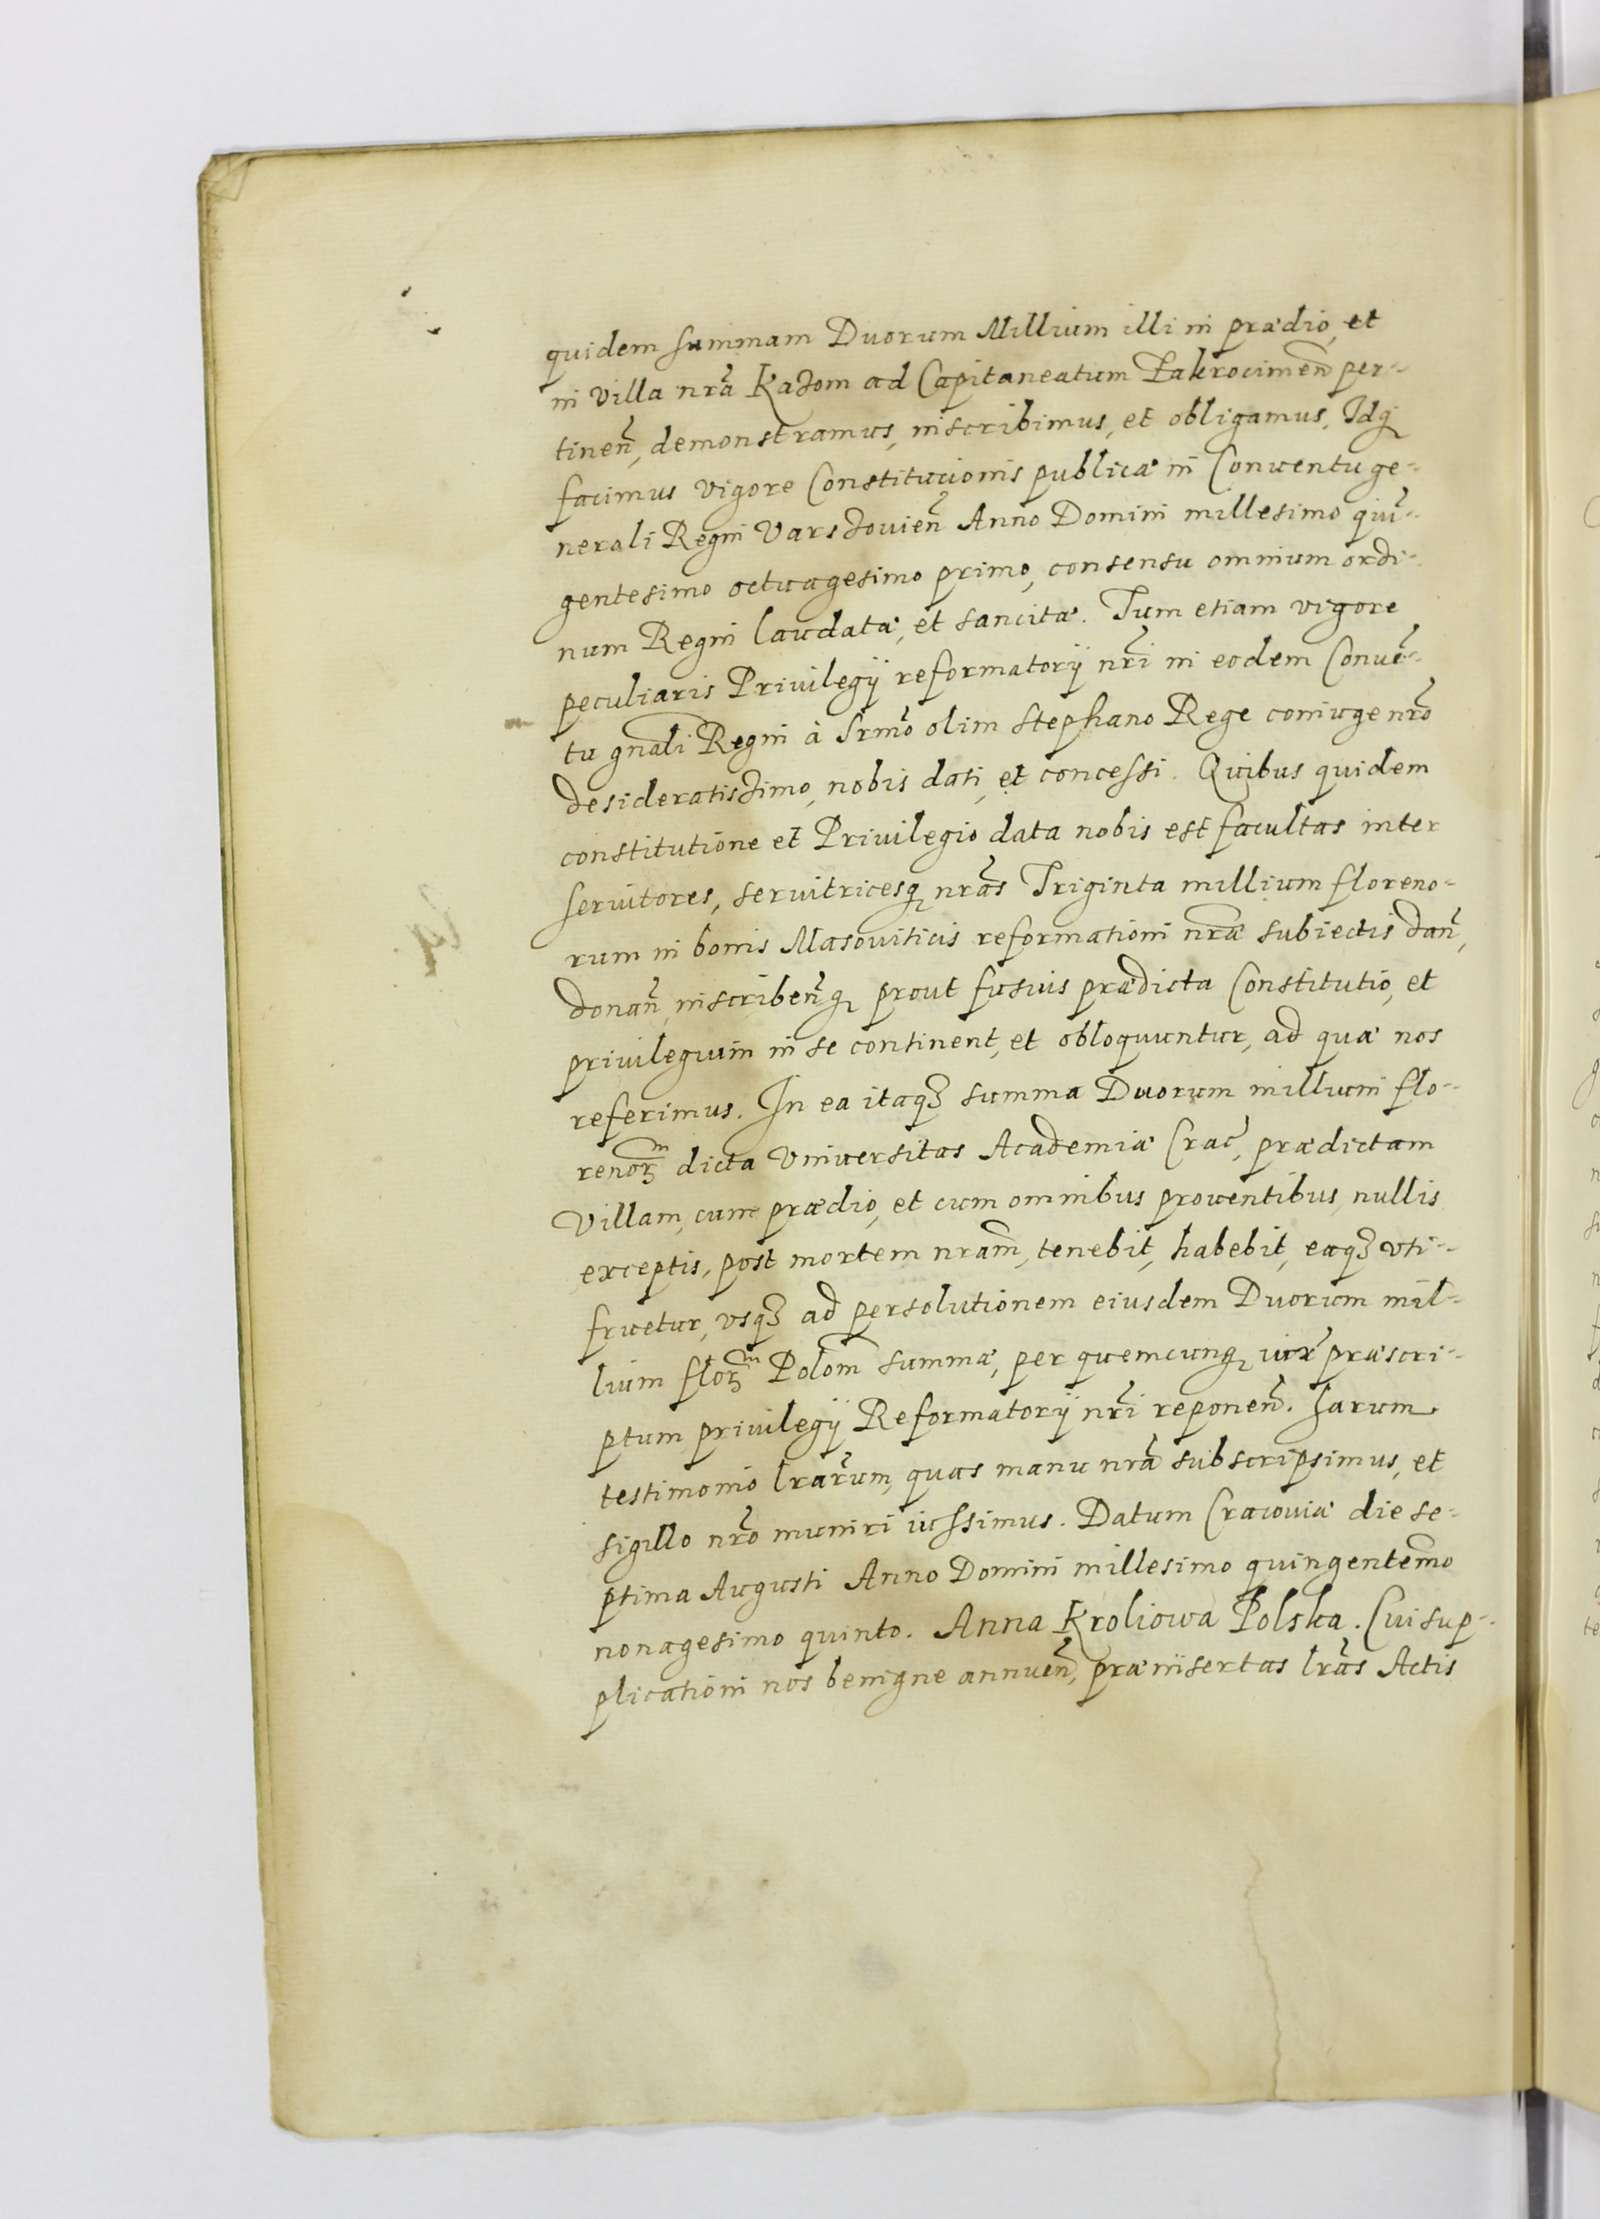 quidem summam Duorum Millium illi in prædio, et
in villa nrã Kazom ad Capitaneatum Zakrocimeñ per-
tineñ, demonstramus, inscribimus, et obligamus, Idq
facimus vigore Constitucionis publicæ in Conuentu ge-
nerali Regni Varszouieñ Anno Domini millesimo quiñ-
gentesimo octuagesimo primo, consensu omnium ordi-
num Regni laudatæ, et sancitæ. Tum etiam vigore
peculiaris Priuilegij reformatorij nrĩ in eodem Conuẽ-
tu gnãli Regni à Srmõ olim Stephano Rege coniuge nrõ
desideratissimo, nobis dati, et concessi. Quibus quidem
constitutione et Priuilegio data nobis est facultas inter
seruitores, seruitricesq nrãs Triginta millium floreno-
rum in bonis Masouiticis reformationi nræ̃ subiectis dañ,
donañ, inscribeñq prout fusius prædicta Constitutio, et
priuilegium in se continent, et obloquuntur, ad quæ nos
referimus. In ea itaqȝ summa Duorum millium flo-
renorꝫm dicta Vniuersitas Academiæ Crac̃, prædictam
Villam, cum prædio, et cum omnibus prouentibus, nullis
exceptis, post mortem nrãm, tenebit, habebit, eaqȝ vti-
fruetur, vsqȝ ad persolutionem eiusdem Duorum mil-
lium florꝫm Polom̃ summæ, per quemcunq iuxẽ præscri-
ptum priuilegij Reformatorij nrĩ reponeñ. Harum
testimonio lrãrum, quas manu nrã subscripsimus, et
sigillo nrõ muniri iussimus. Datum Cracouiæ die se-
ptima Augusti Anno Domini millesimo quingentem̃o
nonagesimo quinto. Anna Kroliowa Polska. Cui sup-
plicationi nos benigne annueñ, præinsertas lrãs Actis